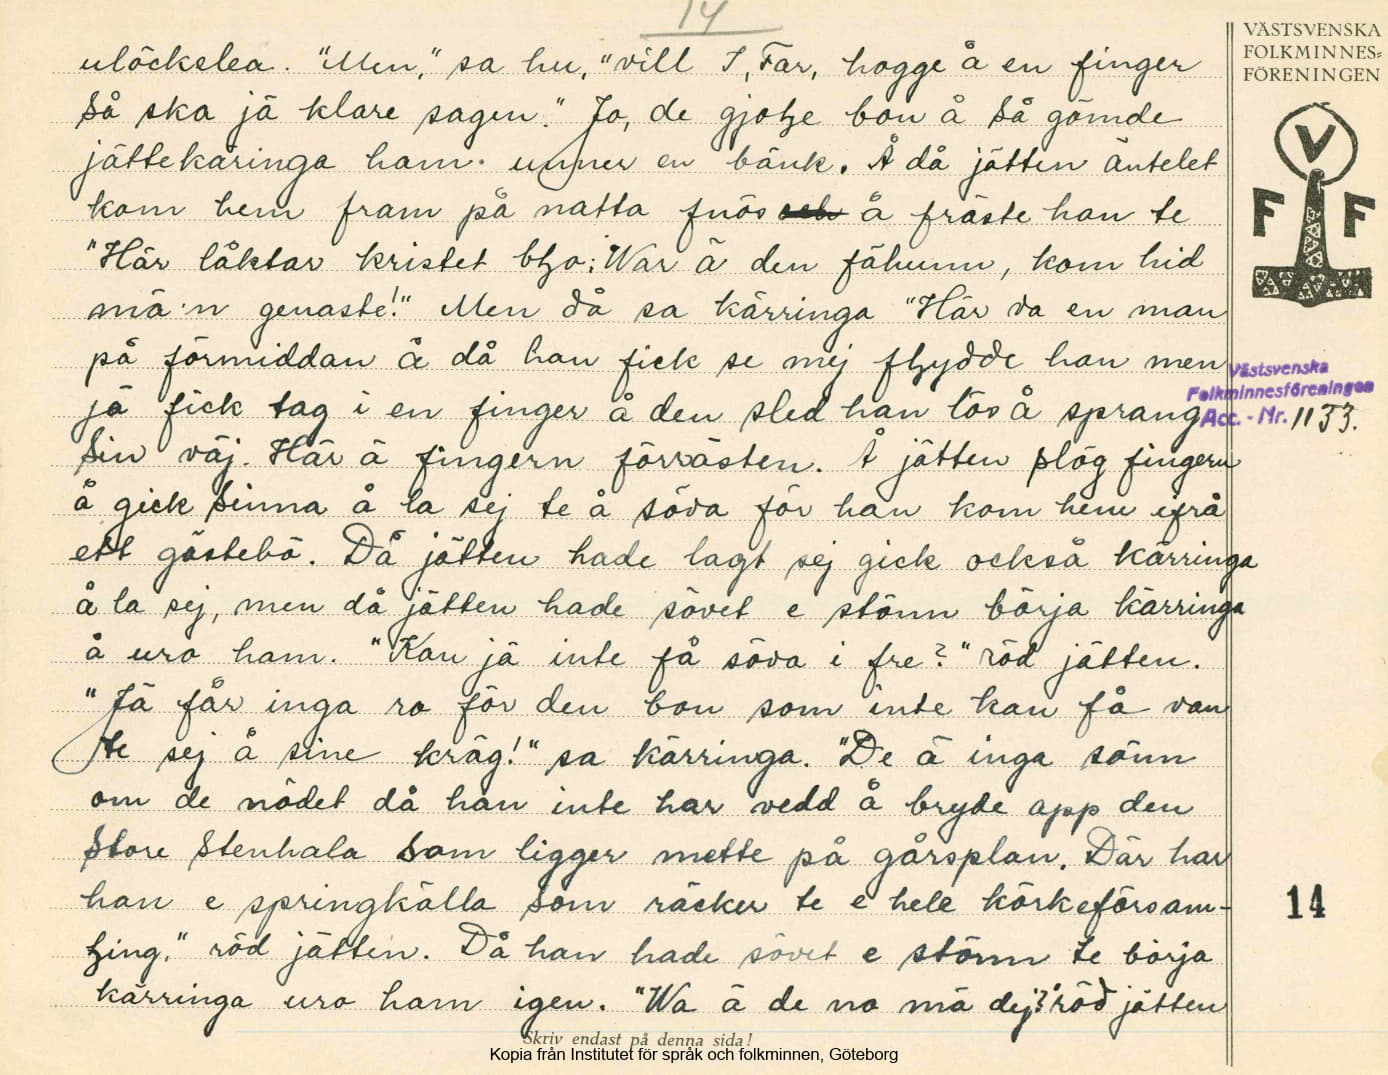 14
VÄSTSVENSKA
FOLKMINNES=
FÖRENINGEN
V
F F
ulöckslea. "Men," sa hu, "vill I, Far, hogge å en finger
så ska jä klare sagen." Jo, de gjoḻe bon å så gömde
jättekäringa ham. unner en bänk. Å då jätten äntelet
kom hem fram på natta fnös och å fräste han te
"Här låktar kristet bḻo: War ä den fähunn, kom hid
mä'n genaste!" Men då sa kärringa "Här va en man
på förmiddan å då han fick se mej fḻydde han men
jä fick tag i en finger å den sled han lös å sprang
sin väj. Här ä fingern förrästen. Å jätten slög fingern
å gick sinna å la sej te å söva för han kom hem ifrå
ett gästebö. Då jätten hade lagt sej gick också kärringa
å la sej, men då jätten hade sövet e stönn börja kärringa
å uro ham. "Kan jä inte få söva i fre?" röd jätten.
"Jä får inga ro för den bon som inte kan få van
te sej å sine kräg!" sa kärringa. "De ä inga sönn
om de nödet då han inte har vedd å bryde app den
store stenhala som ligger mette på gårsplan. Där har
han e springkälla som räcker te e hele körkeförsam-
ḻing," röd jätten. Då han hade sövet e stönn te börja
kärringa uro ham igen. "Wa ä de no mä dej?" röd jätten
Västsvenska
Folkminnesföreningen
Acc. - Nr. 1133.
14
Skriv endast på denna sida!
Kopia från Institutet för språk och folkminnen, Göteborg